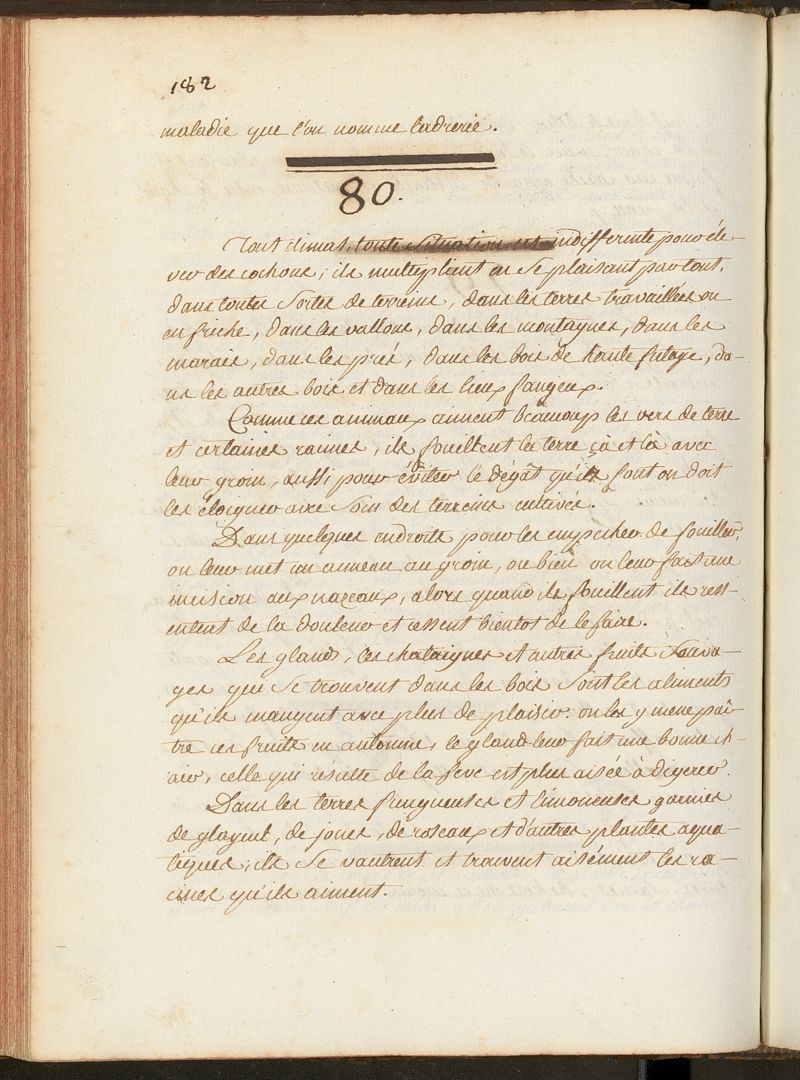 182
maladie que l'on nomme ladrerie.
80.
Tout climat, toute situation est indifferente pour éle-
ver des cochons, ils multiplient en se plaisant partout,
dans toutes sortes de terreins, dans les terres travaillées ou
en friche, dans les vallons, dans les montagnes, dans les
marais, dans les prés, dans les bois de haute futaye, da-
ns les autres bois et dans les lieux fangeux.
Comme ces animaux aiment beaucoup les vers de terre
et certaines racines, ils fouillent la terre çà et là avec
leur groin, aussi pour éviter le dégât qu'ils font on doit
les éloigner avec soin des terreins cultivés.
Dans quelques endroits pour les empecher de fouiller,
on leur met un anneau au groin, ou bien on leur fait une
incision aux nazeaux, alors quand ils fouillent ils ress-
entent de la douleur et cessent bientot de le faire.
Les glands, les chataignes et autres fruits sauva-
ges qui se trouvent dans les bois sont les aliments
qu'ils mangent avec plus de plaisir: on les y mene paî-
tre ces fruits en automne, le gland leur fait une bonne ch-
air, celle qui résulte de la feve est plus aisée à digerer.
Dans les terres fangueuses et limoneuses garnies
de glayeul, de joncs, de roseaux et d'autres plantes aqua-
tiques, ils se vautrent et trouvent aisément les ra-
cines qu'ils aiment.